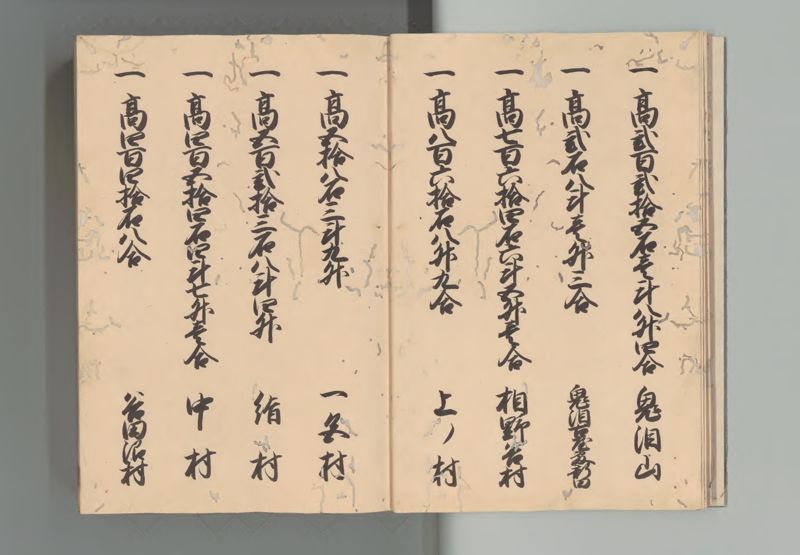 一 高弐百弐拾五石壱斗八升四合 鬼泪山
一 高弐石八斗壱升三合 鬼泪新田
一 高七百六拾四石六斗五升壱合 相野谷村
一 高八百六拾石八升九合 上ノ村
一 高五拾八石二斗九升 一色村
一 高五百弐拾三石八斗四升 絹村
一 高四百五拾四石四斗七升壱合 中村
一 高四百四拾石八合 谷田沼村